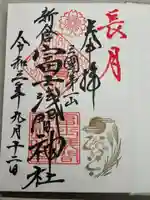 長月
奉拝
三國第一山
新倉富士浅間神社
令和三年九月十二日